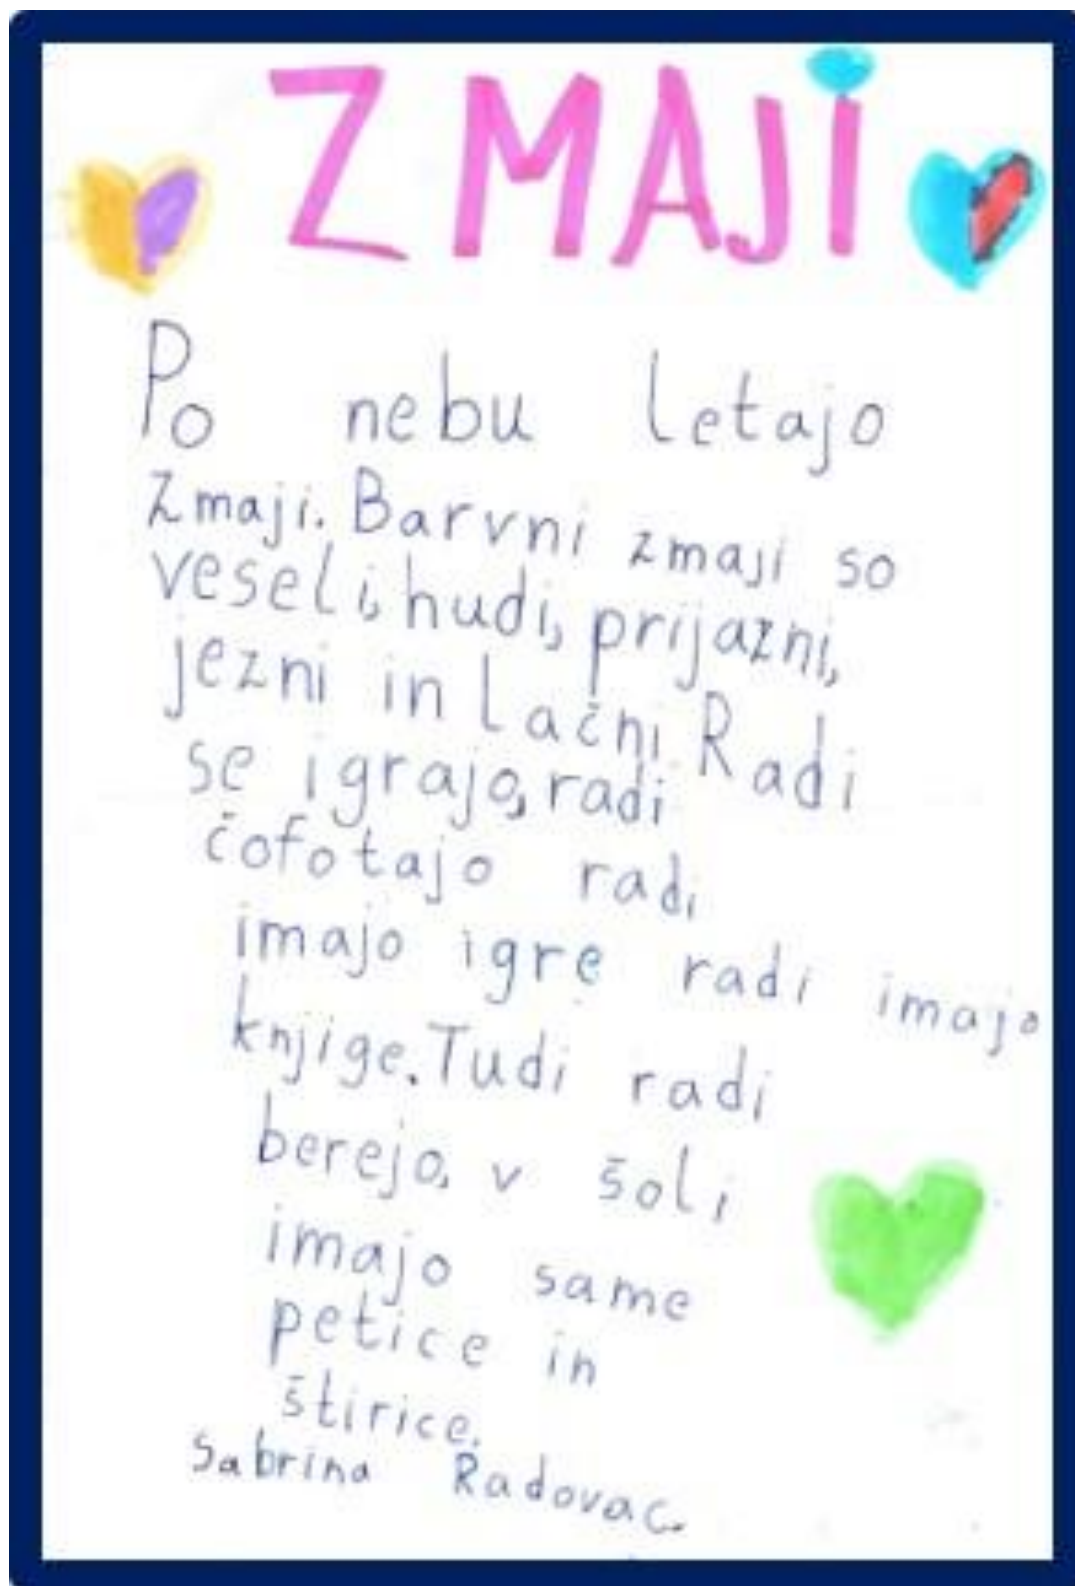 ZMAJI
Po nebu letajo
Zmaji. Barvni zmaji so
veseli, hudi, prijazni,
jezni in lačni. Radi
se igrajo, radi
čofotajo radi
imajo igre radi imajo
knjige. Tudi radi
berejo, v šoli
imajo same
petice in
štirice.
Sabrina Radovac.